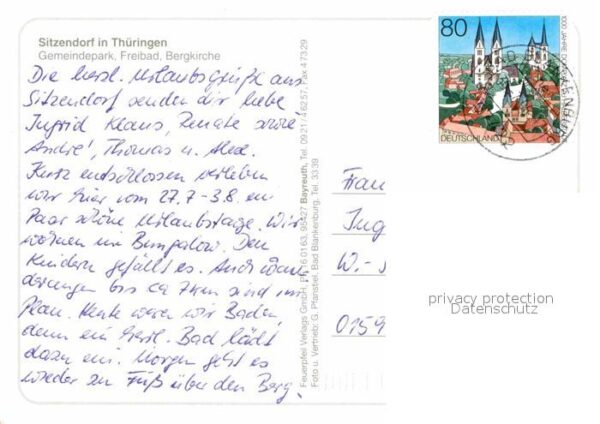 Sitzendorf in Thüringen
Gemeindepark, Freibad, Bergkirche
Die herzl. Urlaubsgrüße aus
Sitzendorf senden dir liebe
Ingrid Klaus, Renate sowie
André, Thomas u. Alex.
Kurz entschlossen verleben
wir hier vom 27.7-3.8. ein
Paar schöne Urlaubstage. Wir
wohnen im Bungalow. Den
Kindern gefällt es. Auch Wan-
derungen bis ca 7km sind im
Plan. Heute waren wir Baden,
denn ein Bad lädt
dazu ein. Morgen geht es
wieder zu Fuß über den Berg.
Feuerpfeil Verlags GmbH, 95427 Bayreuth, Tel. 09 21 / 4 62 57, Fax 4 73 29
Foto u. Vertrieb: G. Pfanstiel, Bad Blankenburg, Tel. 33 39
80
DEUTSCHLAND
Frau
Ing
W.-
0159
privacy protection
Datenschutz